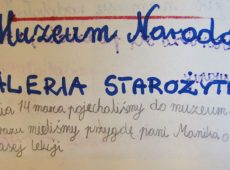 Muzeum Narodo
ALERIA STAROŻYT
ia 14 marca pojechaliśmy do muzeum
mieliśmy przygodę pani Monika o
asej lekcji